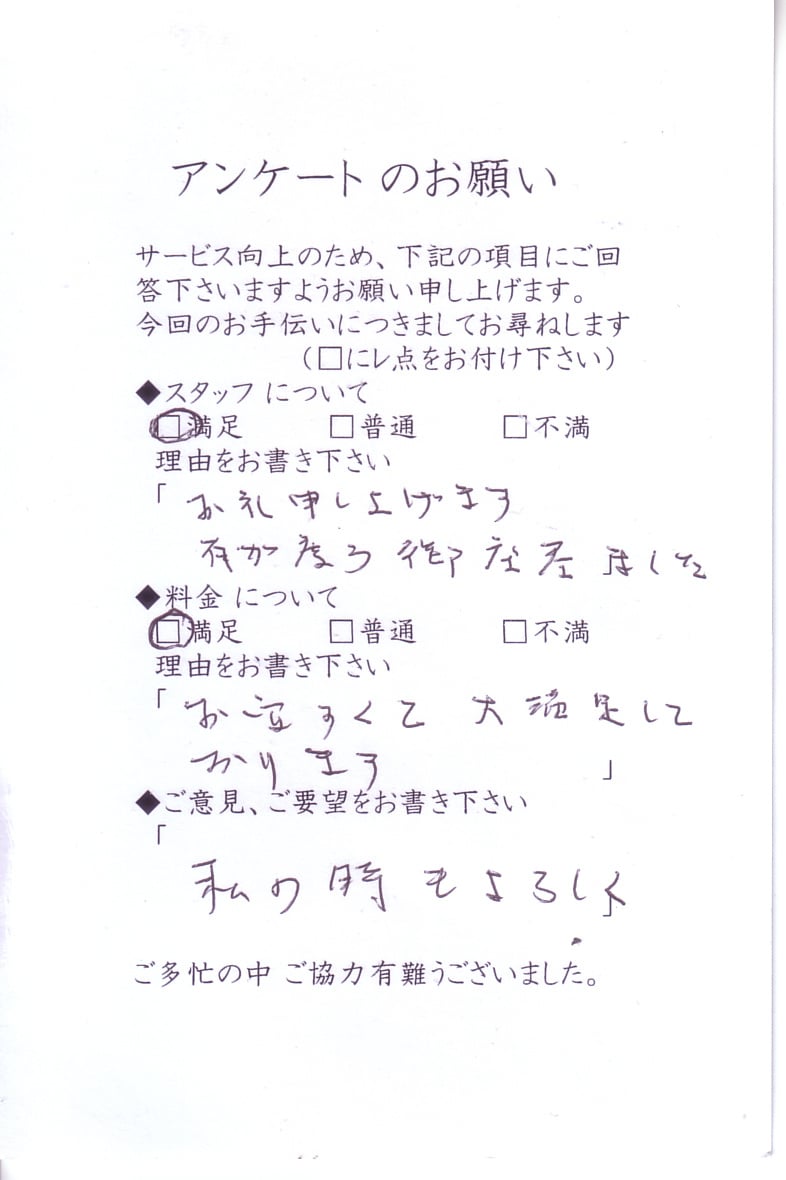 アンケート のお願い
サービス向上のため、下記の項目にご回
答下さいますようお願い申し上げます。
今回のお手伝いにつきましてお尋ねします
（□にレ点をお付け下さい）
◆スタッフ について
□満足 □普通 □不満
理由をお書き下さい
「お礼申し上げます
御座居ました」
◆料金 について
□満足 □普通 □不満
理由をお書き下さい
「お安すくて 大満足して
おります 」
◆ご意見、ご要望をお書き下さい
「
私の時もよろしく」
ご多忙の中 ご協力有難うございました。